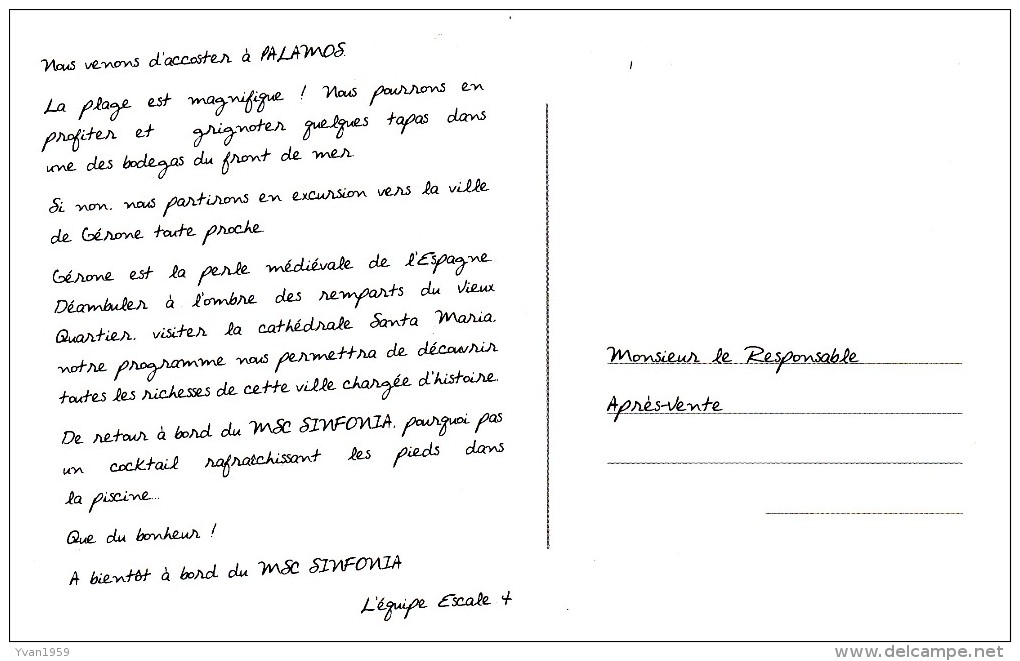 Nous venons d'accoster à PALAMOS.
La plage est magnifique ! Nous pourrons en
profiter et grignoter quelques tapas dans
une des bodegas du front de mer.
Si non, nous partirons en excursion vers la ville
de Gérone toute proche.
Gérone est la perle médiévale de l'Espagne.
Déambuler à l'ombre des remparts du Vieux
Quartier, visiter la cathédrale Santa Maria,
notre programme nous permettra de découvrir
toutes les richesses de cette ville chargée d'histoire.
De retour à bord du MSC SINFONIA, pourquoi pas
un cocktail rafraîchissant les pieds dans
la piscine...
Que du bonheur !
A bientôt à bord du MSC SINFONIA
L'équipe Escale +
Monsieur le Responsable
Après-Vente
Yvan1959
delcampe.net